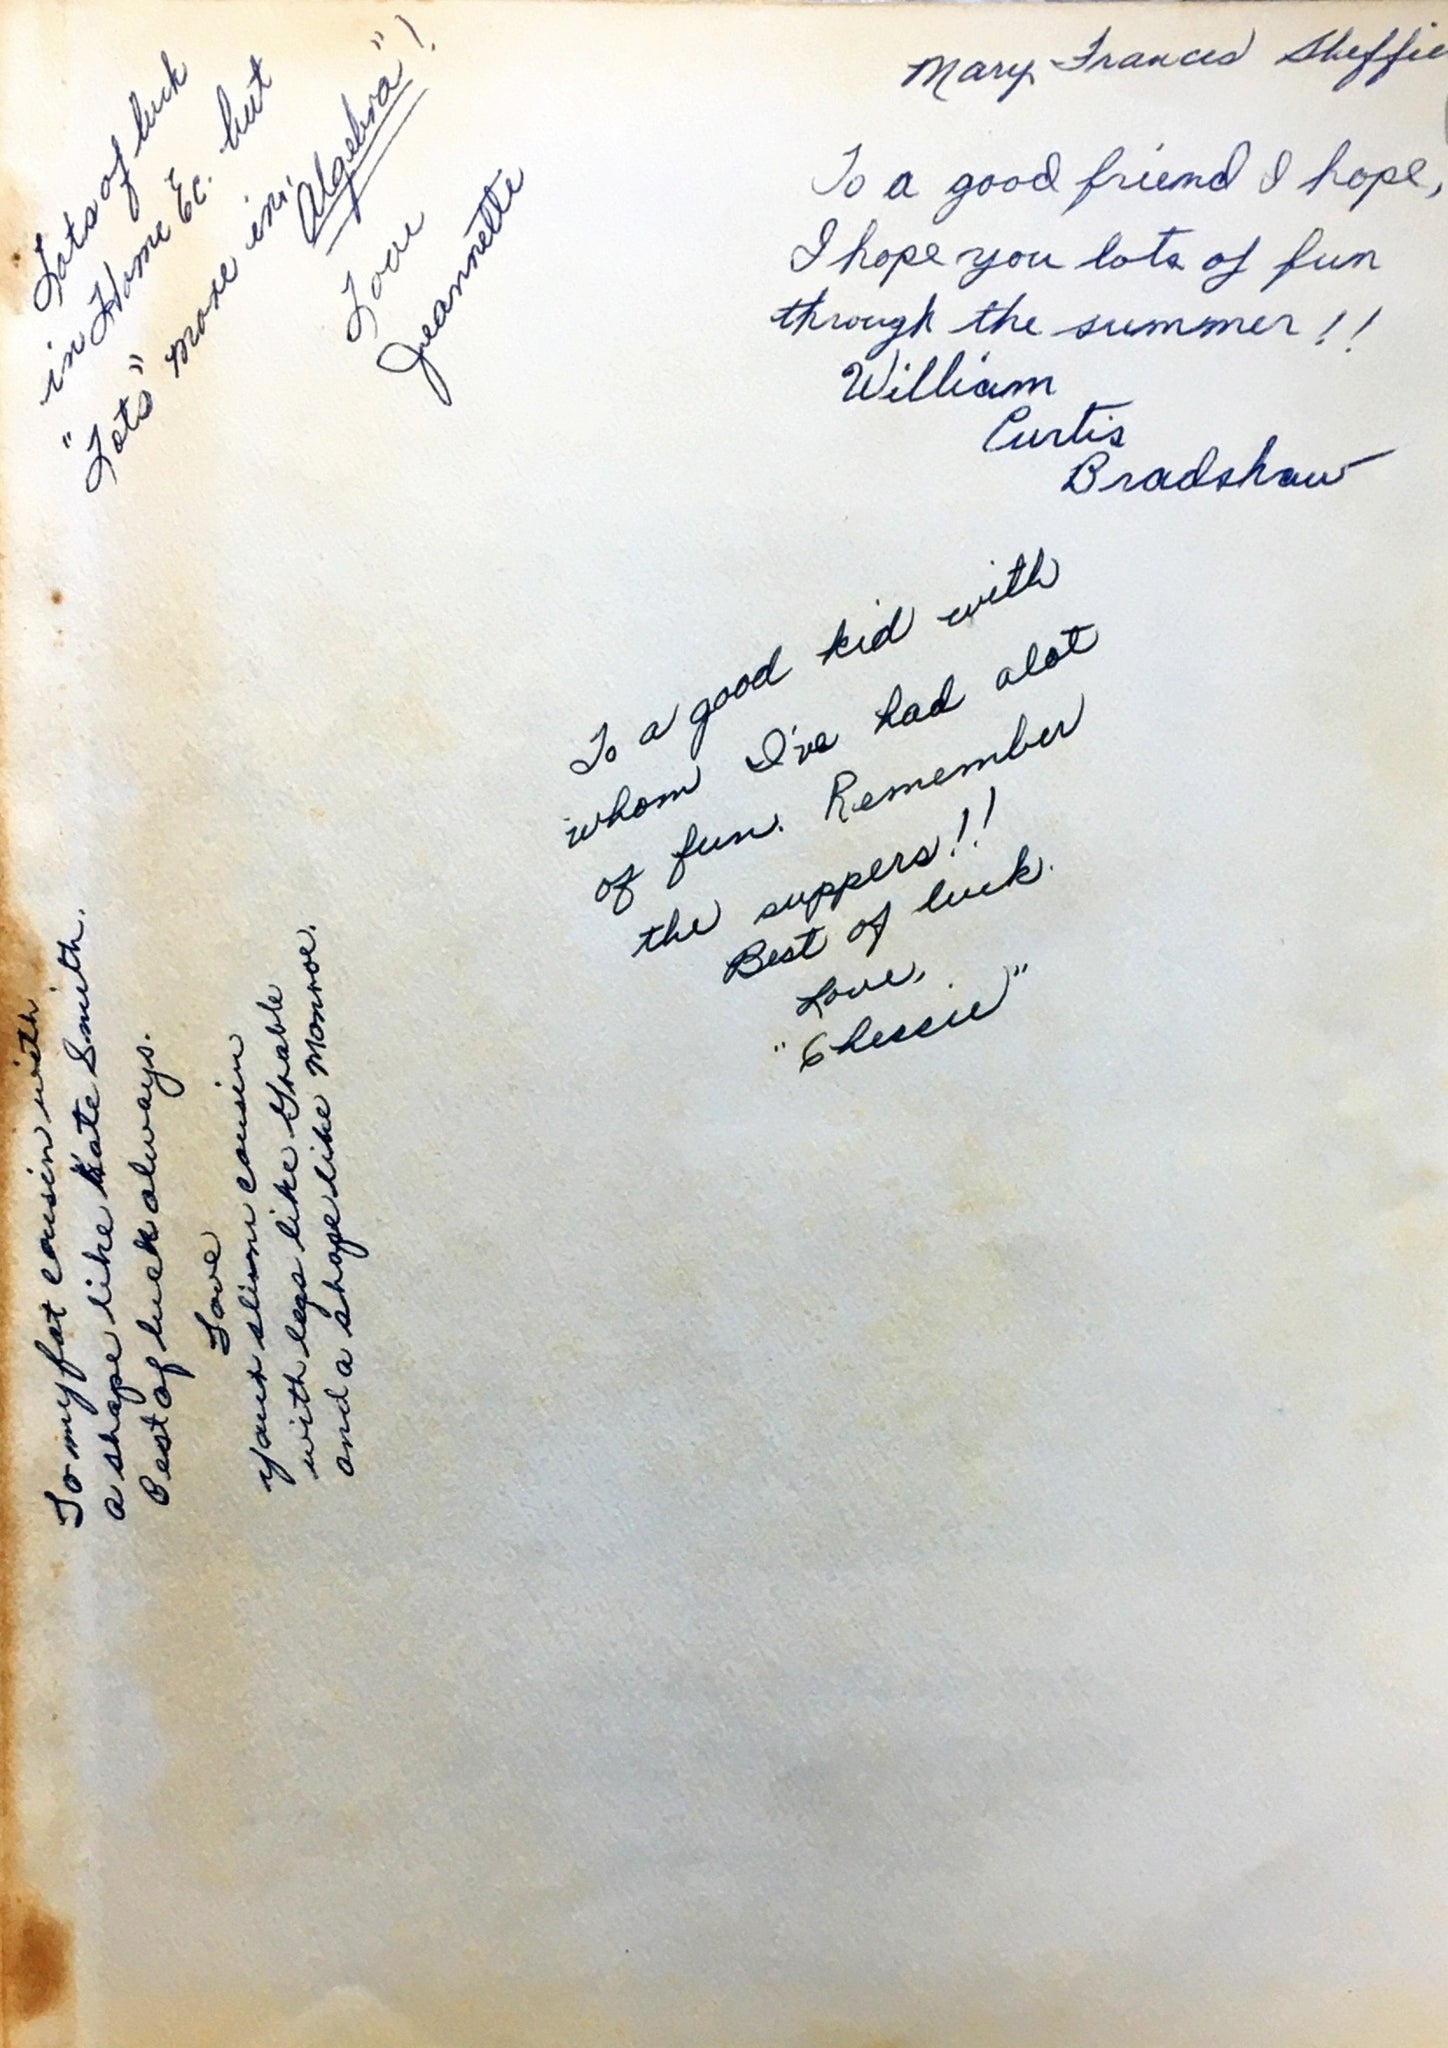 Lots of luck
in Home Ec. but
"Lots" more in
"Algebra"!
Love
Jeannette
Mary Frances
To a good friend I hope,
I hope you lots of fun
through the summer!!
William
Curtis
Bradshaw
To a good kid with
whom I've had alot
of fun. Remember
the suppers!!
Best of luck.
Love,
"Chessie"
To my fat cousin with
a shape like Kate Smith.
Best of luck always.
Love
your slim cousin
with legs like Grable
and a shape like Monroe.